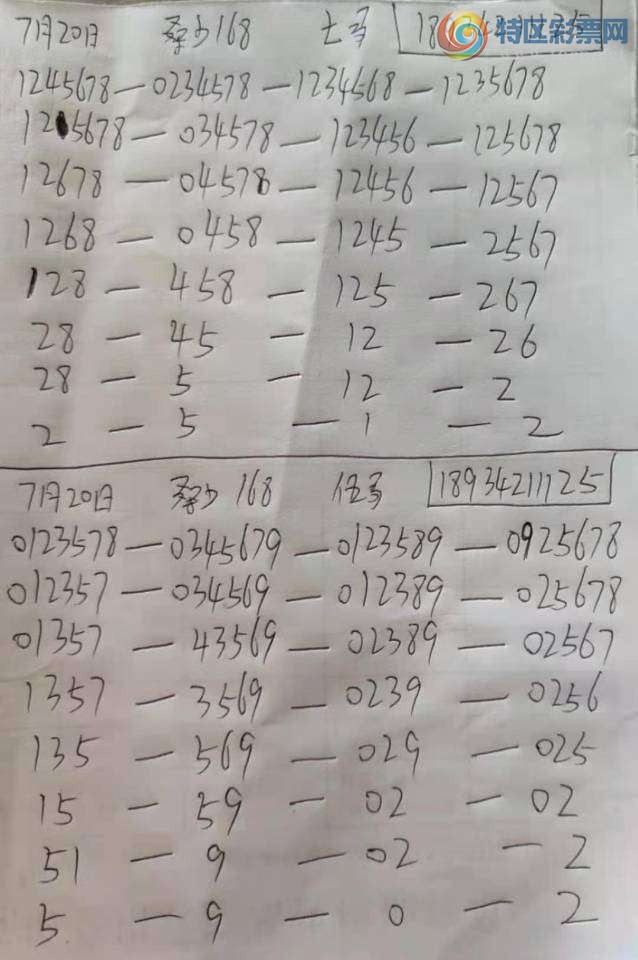 特区彩票网
7月20日 桑少168 士多
1245678—0234578—1234568—1235678
125678—034578—123456—125678
12678—04578—12456—12567
1268—0458—1245—2567
128—458—125—267
28—45—12—26
28—5—12—2
2—5—1—2
7月20日 桑少168 任多 18934211125
0123578—0345679—0123589—0925678
012357—034569—012389—025678
01357—43569—02389—02567
1357—3569—0239—0256
135—569—029—025
15—59—02—02
51—9—02—2
5—9—0—2